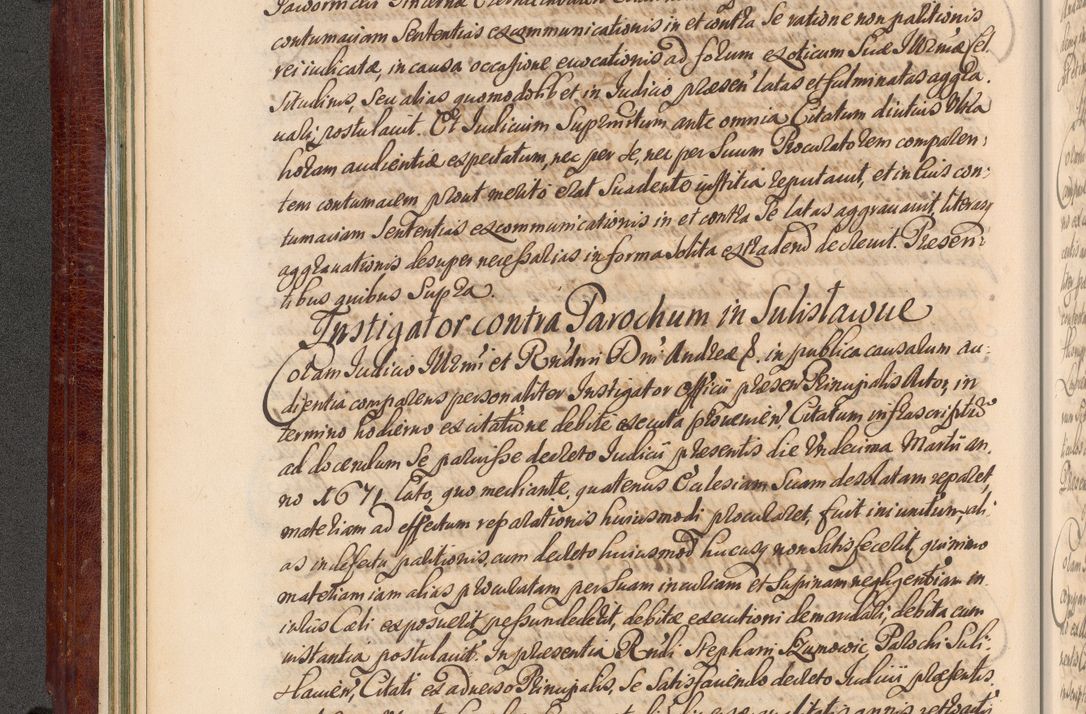 contumaciam Sententias excommunicationis in et contra Se ratione non paritionis
rei iudicatæ, in causa occasione evocationis ad forum exoticum Suæ Illrmæ Cel
situdinis, Seu alias quomodolibet in Iudicio præsen' latas et fulminatas aggra
uari postulauit. Et Iudicium Supremum ante omnia Citatum diutius Ultra
horam audientiæ expectatum, nec per se, nec per Suum Procuratorem comparen:
tem contumacem prout merito erat Suadente iustitia reputauit, et in eius con:
tumaciam Sententias excommunicationis in et contra Se latas aggrauauit, literasq
aggrauationis desuper necessarias in forma solita extradend decreuit. Præsen:
tibus quibus Supra.
Instigator contra Parochum in Sulislawice
Coram Iudicio Illrmi et Rndmi Dni Andreæ &, in publica causarum au:
dientia comparens personaliter Instigator Officii præsen Principalis Actor, in
termino hodierno ex citatione debite executa proueniẽn, Citatum infrascriptũ
ad docendum Se paruisse decreto Iudicii præsentis die Undecima Martii an.
no 1671 lato, quo mediante, quatenus Ecclesiam Suam desolatam reparet,
materiam ad effectum reparationis huiusmodi procuraret, fuit iniunctum, ali
as in defectu paritionis, cum decreto huiusmod hucusq non Satisfecerit, quinimo
materiam iam alias procuratam per Suam incuriam et Supinam negligentiam in
iniuriis Cæli exposuerit pessundederit, debitæ executioni demandari, debita cum
instantia postulauit. In præsentia Rndi Stephani Szumowic Parochi Suli:
slauien, Citati ex aduerso Principalis, Se Satisfaciendo decreto Iudicii præsentis,